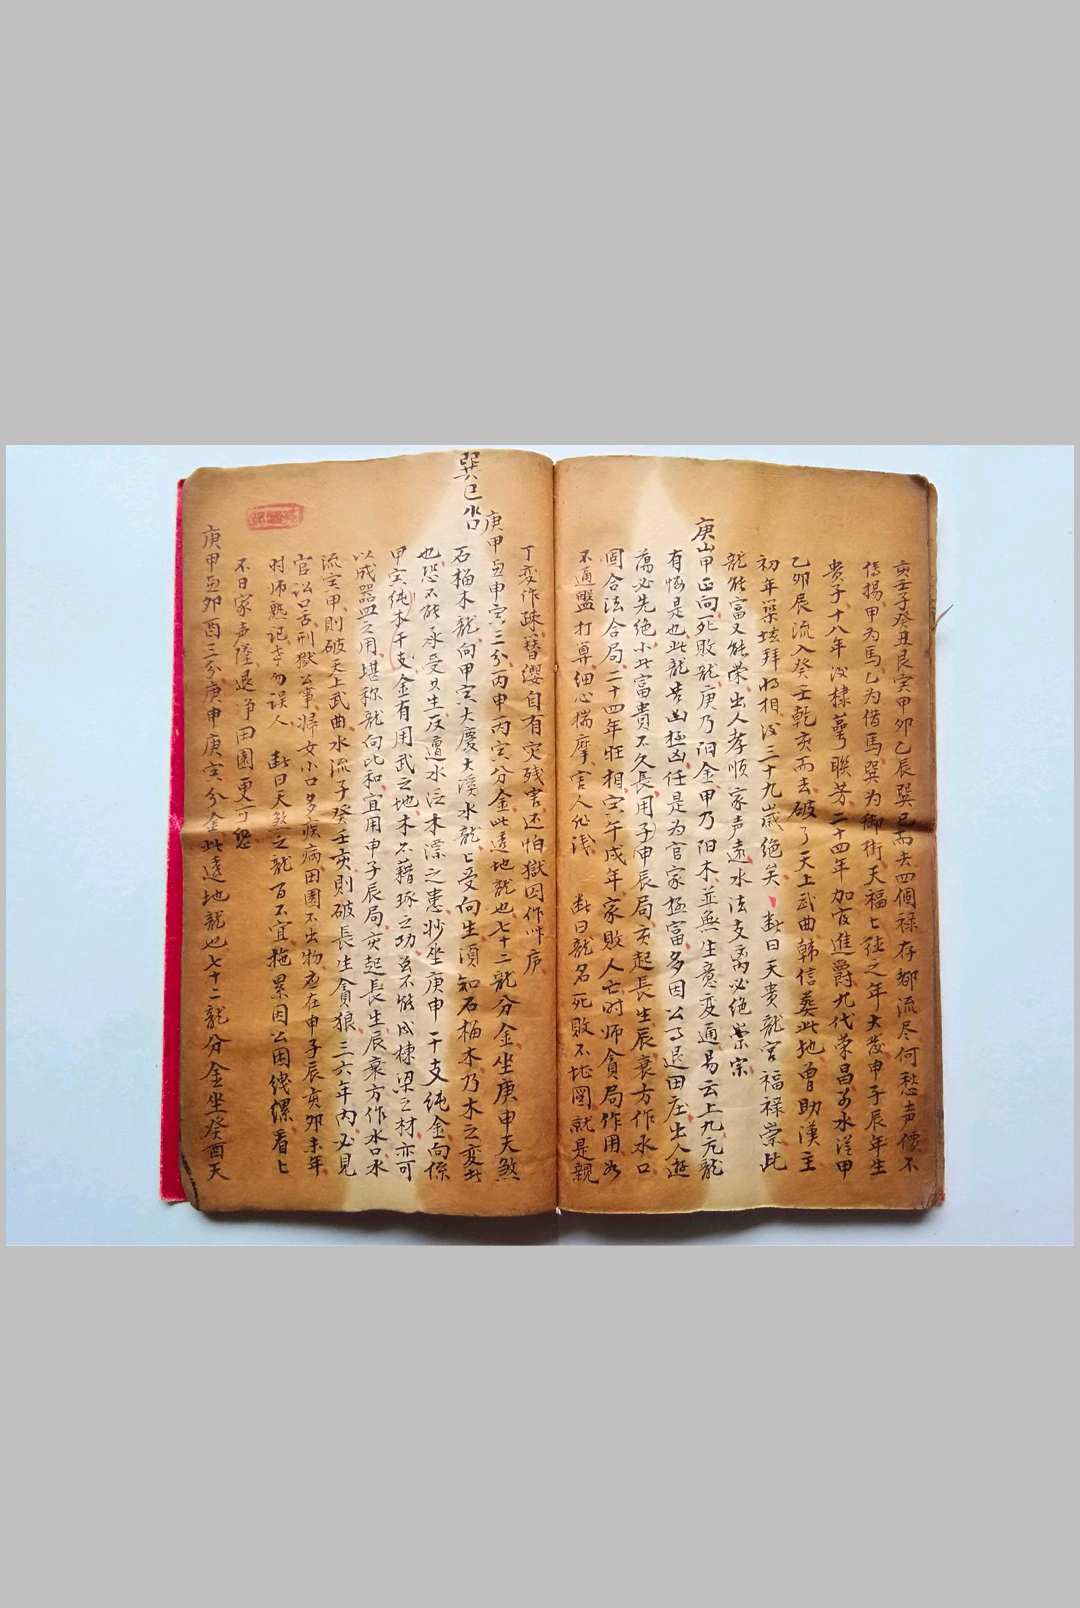 亥壬子癸丑艮寅甲卯乙辰巽巳而去四個祿存都流尽何愁声價不
揚甲为馬乙为借馬巽为御街天福七弦之年大發申子辰年生
贵子十八年后棣萼聯芳二十四年加官進爵九代荣昌水從甲
乙卯辰流入癸壬乾亥而去破了天上武曲韩信葬此地曾助漢主
初年築垓拜将相后三十九歲绝矣 断曰天贵龍宫福禄崇此
龍能富又能荣出人孝顺家声遠水法支离必绝宗
庚山甲正向死敗龍庚乃阳金甲乃阳木並無生意变通易云上九亢龍
有悔是也此龍凶極凶任是为官家極富多因公事退田庄出人遊
蕩必先绝小此富贵不久長用子申辰局亥起長生辰衰方作水口
圖合法合局二十四年旺相寅午戌年家敗人亡时师貪局作用
不通盤打算细心揣摩害人不浅 断曰龍名死敗不圖就是親
丁变作疎簪缨自有灾残害还怕獄囚作序
巽巳水口
庚甲兼申寅三分丙申丙寅分金此透地龍也七十二龍分金坐庚申天煞
石榴木龍向甲寅大慶大溪水龍上受向生須知石榴木乃木之变此
也恐不能承受只生反遭水泛木漂之患妙坐庚申干支纯金向係
甲寅纯木干支金有用武之地木不藉琢之功並不能成棟梁之材亦可
以成器皿之用堪称龍向比和宜用申子辰局亥起長生辰衰方作水口水
流寅甲則破天上武曲水流子癸壬亥則破長生貪狼三六年内必見
官訟口舌刑獄公事婦女小口多疾病田園不出物应在申子辰亥卯未年
时师熟记幸勿误人 断曰天煞之龍百不宜拖累因公困缧看七
不日家声隆退净田園更可悲
庚甲兼卯酉三分庚申庚寅分金此透地龍也七十二龍分金坐癸酉天